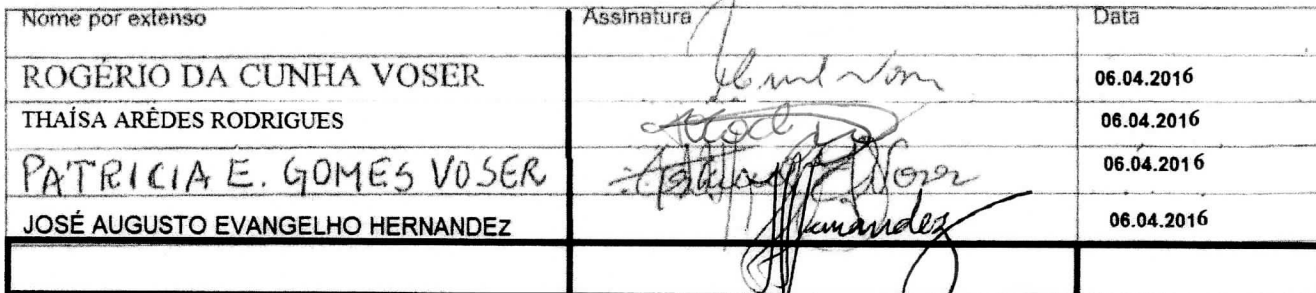 Nome por extenso Assinatura Data
ROGÉRIO DA CUNHA VOSER 06.04.2016
THAÍSA ARÊDES RODRIGUES 06.04.2016
PATRICIA E. GOMES VOSER Voser 06.04.2016
JOSÉ AUGUSTO EVANGELHO HERNANDEZ Hernandez 06.04.2016